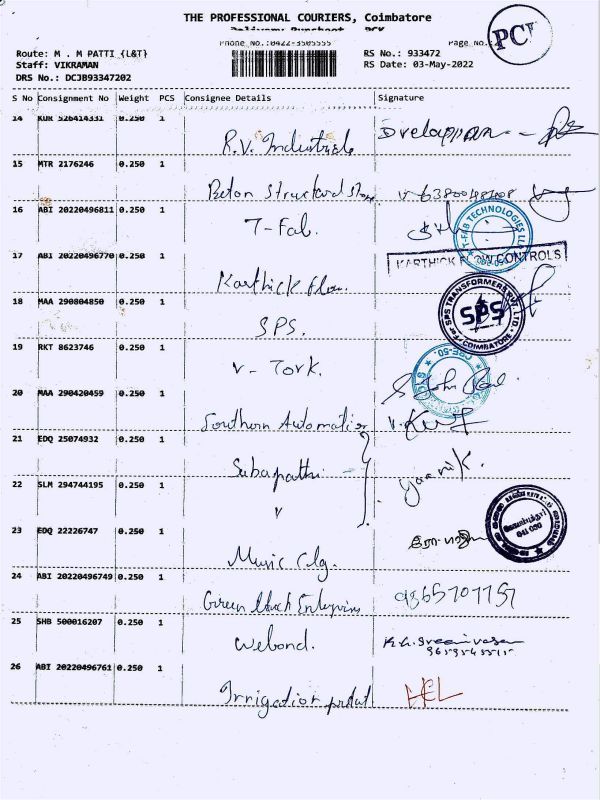 THE PROFESSIONAL COURIERS, Coimbatore
PCV
Phone No.:0422-3505555 Page No.:2
Route: M . M PATTI {L&T} RS No.: 933472
Staff: VIKRAMAN RS Date: 03-May-2022
DRS No.: DCJB93347202
S No Consignment No Weight PCS Consignee Details Signature
14 KUR 526414331 0.250 1
R.V. Industrials
15 MTR 2176246 0.250 1
16 ABI 20220496811 0.250 1
T-Fab.
T-FAB TECHNOLOGIES LLP
17 ABI 20220496770 0.250 1
KARTHICK FLOW CONTROLS
Karthick flow.
18 MAA 290804850 0.250 1
SPS.
For SPS TRANSFORMERS PVT. LTD. COIMBATORE
SPS
19 RKT 8623746 0.250 1
V-Tork.
20 MAA 290420459 0.250 1
Southern Automation
21 EDQ 25074932 0.250 1
Subapathi
22 SLM 294744195 0.250 1
23 EDQ 22226747 0.250 1
Music Clg.
641 050
24 ABI 20220496749 0.250 1
Green
25 SHB 500016207 0.250 1
Webond. K.G. Sreenivasan
26 ABI 20220496761 0.250 1
Irrigation HCL